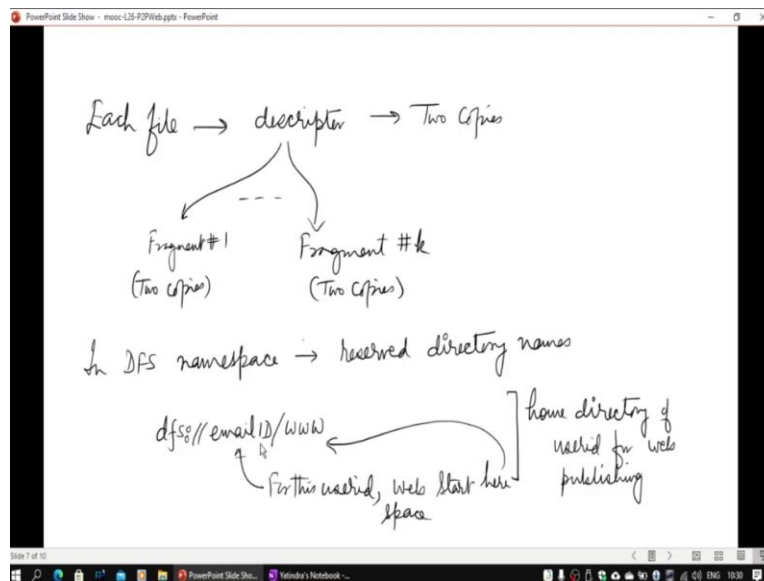 PowerPoint Slide Show - mooc-L26-P2PWeb.pptx - PowerPoint
Each file → descriptor → Two Copies
Fragment #1 Fragment #k
(Two copies) (Two Copies)
In DFS namespace → reserved directory names
dfs://emailID/www
For this userid, web start here
space
home directory of
userid for web
publishing
Slide 7 of 10
PowerPoint Slide Sho... Yatindra's Notebook -... ENG 10:30